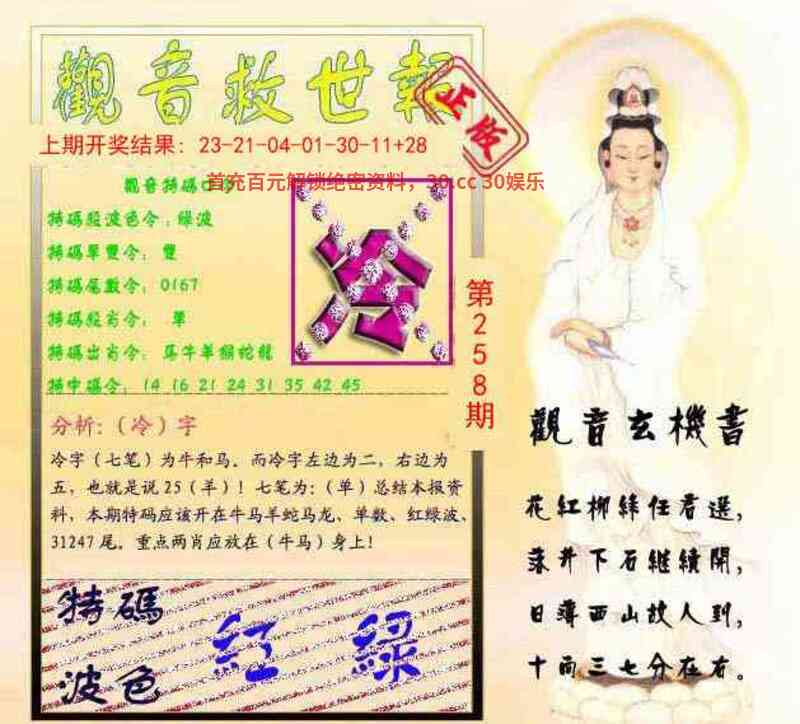 觀音救世報
正版
上期开奖结果：23-21-04-01-30-11+28
首充百元解锁绝密资料，30.cc 30娱乐
觀音特碼
特碼段波色令：绿波
特碼單雙令：雙
特碼尾數令：0167
特碼段肖令：單
特碼出肖令：馬牛羊猴蛇龍
特中碼令：14 16 21 24 31 35 42 45
冷
第258期
分析：（冷）字
冷字（七笔）为牛和马。而冷字左边为二，右边为
五，也就是说25（羊）！七笔为：（单）总结本报资
料，本期特码应该开在牛马羊蛇马龙、单数、红绿波、
31247尾。重点两肖应放在（牛马）身上！
特碼
波色
紅 綠
觀音玄機書
花紅柳綠任君選，
落井下石繼續開，
日薄西山故人到，
十面三七分在右。